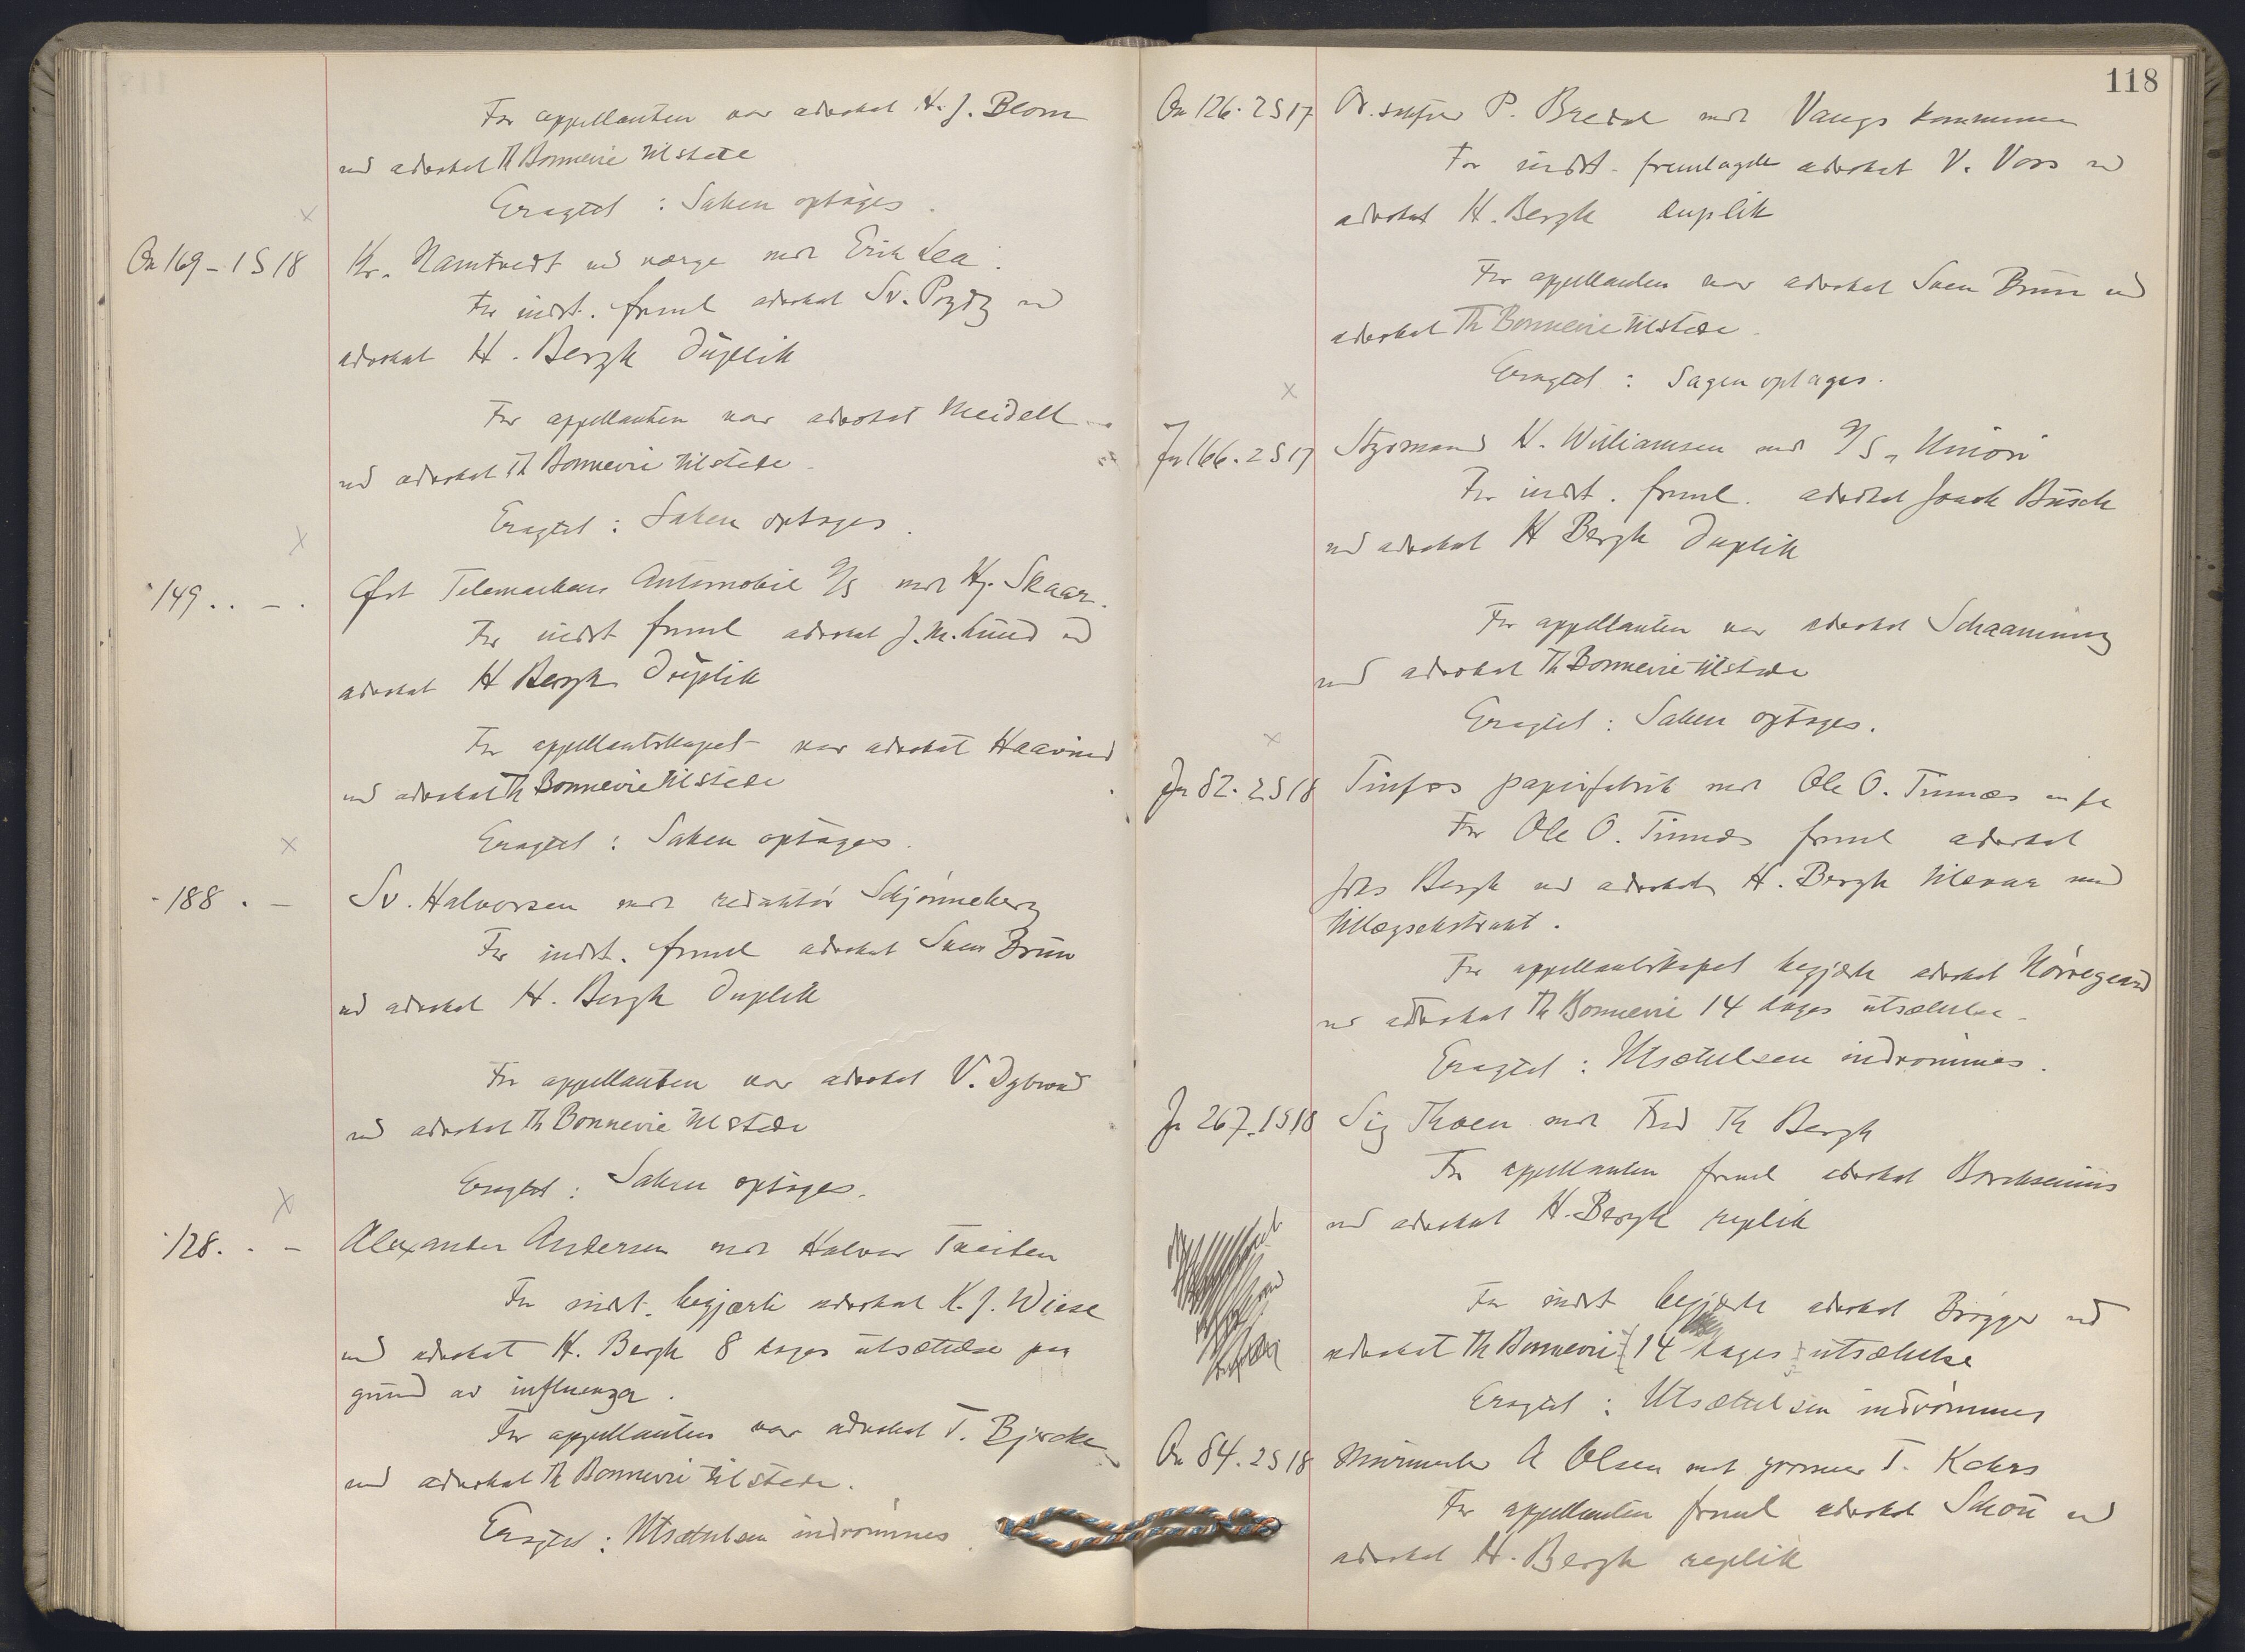 For appellanten var advokat K. J. Blom
ved advokat Th Bonnevie tilstede
Eragtet : Saken optages.
On 169 - 1 S 18 Kr. Namtvedt ved værge mot Erik Lea.
For indst. freml advokat Sv. Prydz ved
advokat H. Bergh Duplik
For appellanten var advokat Meidell
ved advokat Th Bonnevie tilstede
Eragtet : Saken optages.
149 . . - . Øst Telemarkens Automobil A/S mot Hj. Skaar.
For indst freml advokat J. M. Lund ved
advokat H Bergh Duplik
For appellantskapet var advokat Haavind
ved advokat Th Bonnevie tilstede
Eragtet : Saken optages.
- 188 . - Sv. Halvorsen mot redaktør Schjønneberg
For indst. freml advokat Sven Brun
ved advokat H. Bergh Duplik
For appellanten var advokat V. Dybwad
ved advokat Th Bonnevie tilstede
Eragtet : Saken optages.
128. . - Alexander Andersen mot Halvor Treiten
For indst. begjærte advokat K. J. Wiese
ved advokat H. Bergh 8 dages utsættelse paa
grund av influenza.
For appellanten var advokat T. Bjercke
ved advokat Th Bonnevie tilstede.
Eragtet : Utsættelsen indrømmes.
118
On 126. 2 S 17 P. Bredal mot Vangs kommune
For indst. fremlagde advokat V. Voss ved
advokat H. Bergh duplik
For appellanten var advokat Sven Brun ved
advokat Th Bonnevie tilstede.
Eragtet : Sagen optages.
Fr 166. 2 S 17 Styrmand N. Williamsen mot A/S „Union
For indst. freml. advokat Joach Busch
ved advokat H Bergh Duplik
For appellanten var advokat Schaanning
ved advokat Th Bonnevie tilstede
Eragtet : Saken optages.
Fr 82. 2 S 18 Tinfos papirfabrik mot Ole O. Tinnæs
For Ole O. Tinnæs freml advokat
Johs Bergh ved advokat H. Bergh tilsvar med
tillægsekstrakt.
For appellantskapet begjærte advokat Nørregaard
ved advokat Th Bonnevie 14 dages utsættelse.
Eragtet : Utsættelsen indrømmes.
Fr 267. 1 S 18 Sig Thoen mot Fred Th Bergh
For appellanten freml advokat Borchsenius
ved advokat H. Bergh replik
For indst begjærte advokat Brøgger ved
advokat Th Bonnevie 14 dages utsættelse
Eragtet : Utsættelsen indrømmes
On 84. 2 S 18 Murmester A Olsen mot T. Kahrs
For appellanten freml advokat Schou ved
advokat H. Bergh replik